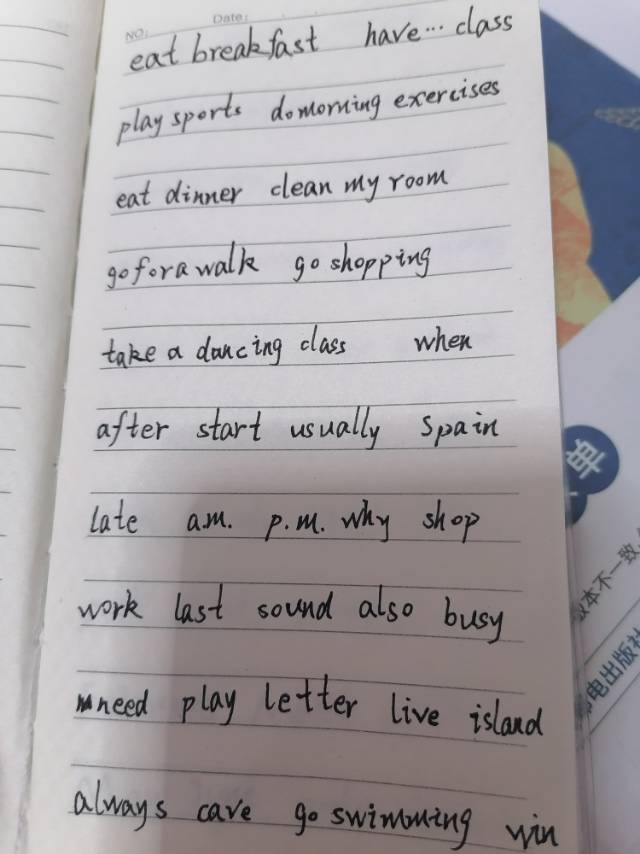 NO: Date:
eat breakfast have… class
play sports do morning exercises
eat dinner clean my room
go for a walk go shopping
take a dancing class when
after start usually Spain
late a.m. p.m. why shop
work last sound also busy
need play letter live island
always cave go swimming win
单
版本不一致,
电出版社